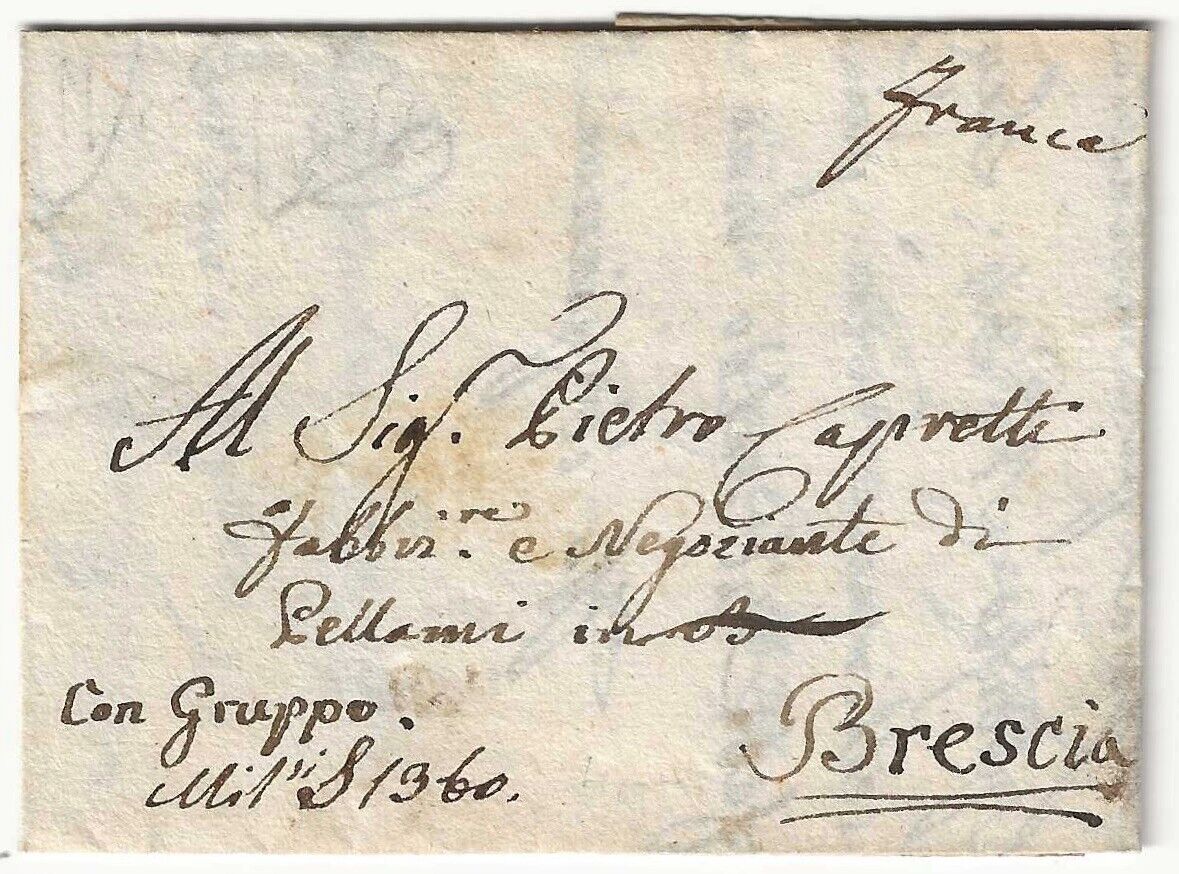 france
Al Sig.r Pietro Capretti
Fabbri.re e Negoziante di
Pellami in
Con Gruppo.
Mil.si 1360.
Brescia